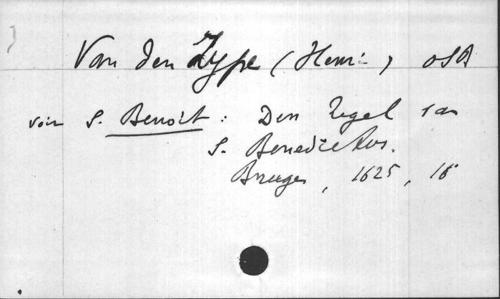 Van den Zype (Henri) OSB
voir S. Benoit : Den Regel van
S. Benedictus.
Bruges, 1625, 16°